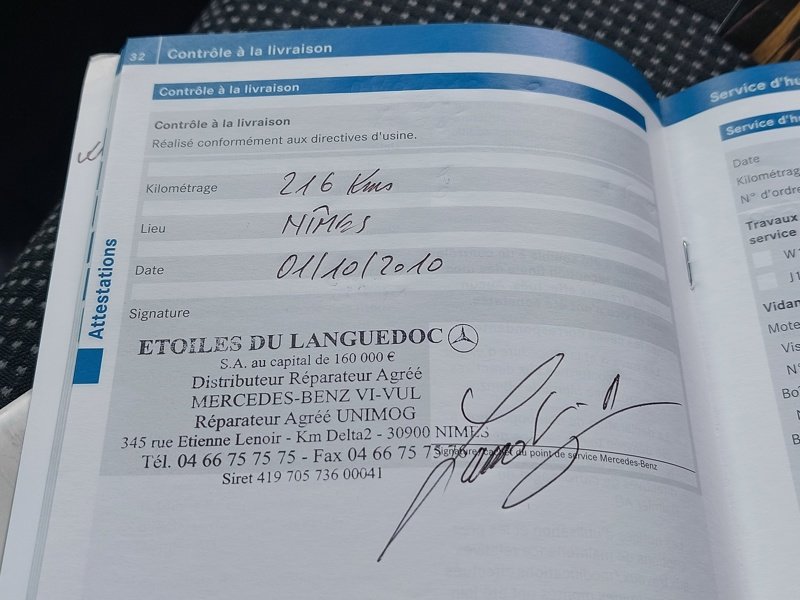 32 Contrôle à la livraison
Contrôle à la livraison
Contrôle à la livraison
Réalisé conformément aux directives d'usine.
Kilométrage 216 Kms
Lieu NÎMES
Date 01/10/2010
Signature
ETOILES DU LANGUEDOC
S.A. au capital de 160 000 €
Distributeur Réparateur Agréé
MERCEDES-BENZ VI-VUL
Réparateur Agréé UNIMOG
345 rue Etienne Lenoir - Km Delta2 - 30900 NIMES
Tél. 04 66 75 75 75 - Fax 04 66 75 75
Siret 419 705 736 00041
du point de service Mercedes-Benz
Attestations
Service d'hu
Service d'hu
Date
Kilométrag
N° d'ordre
Travaux
service
W
J1
Vidan
Mote
Vis
N°
Boî
N
B